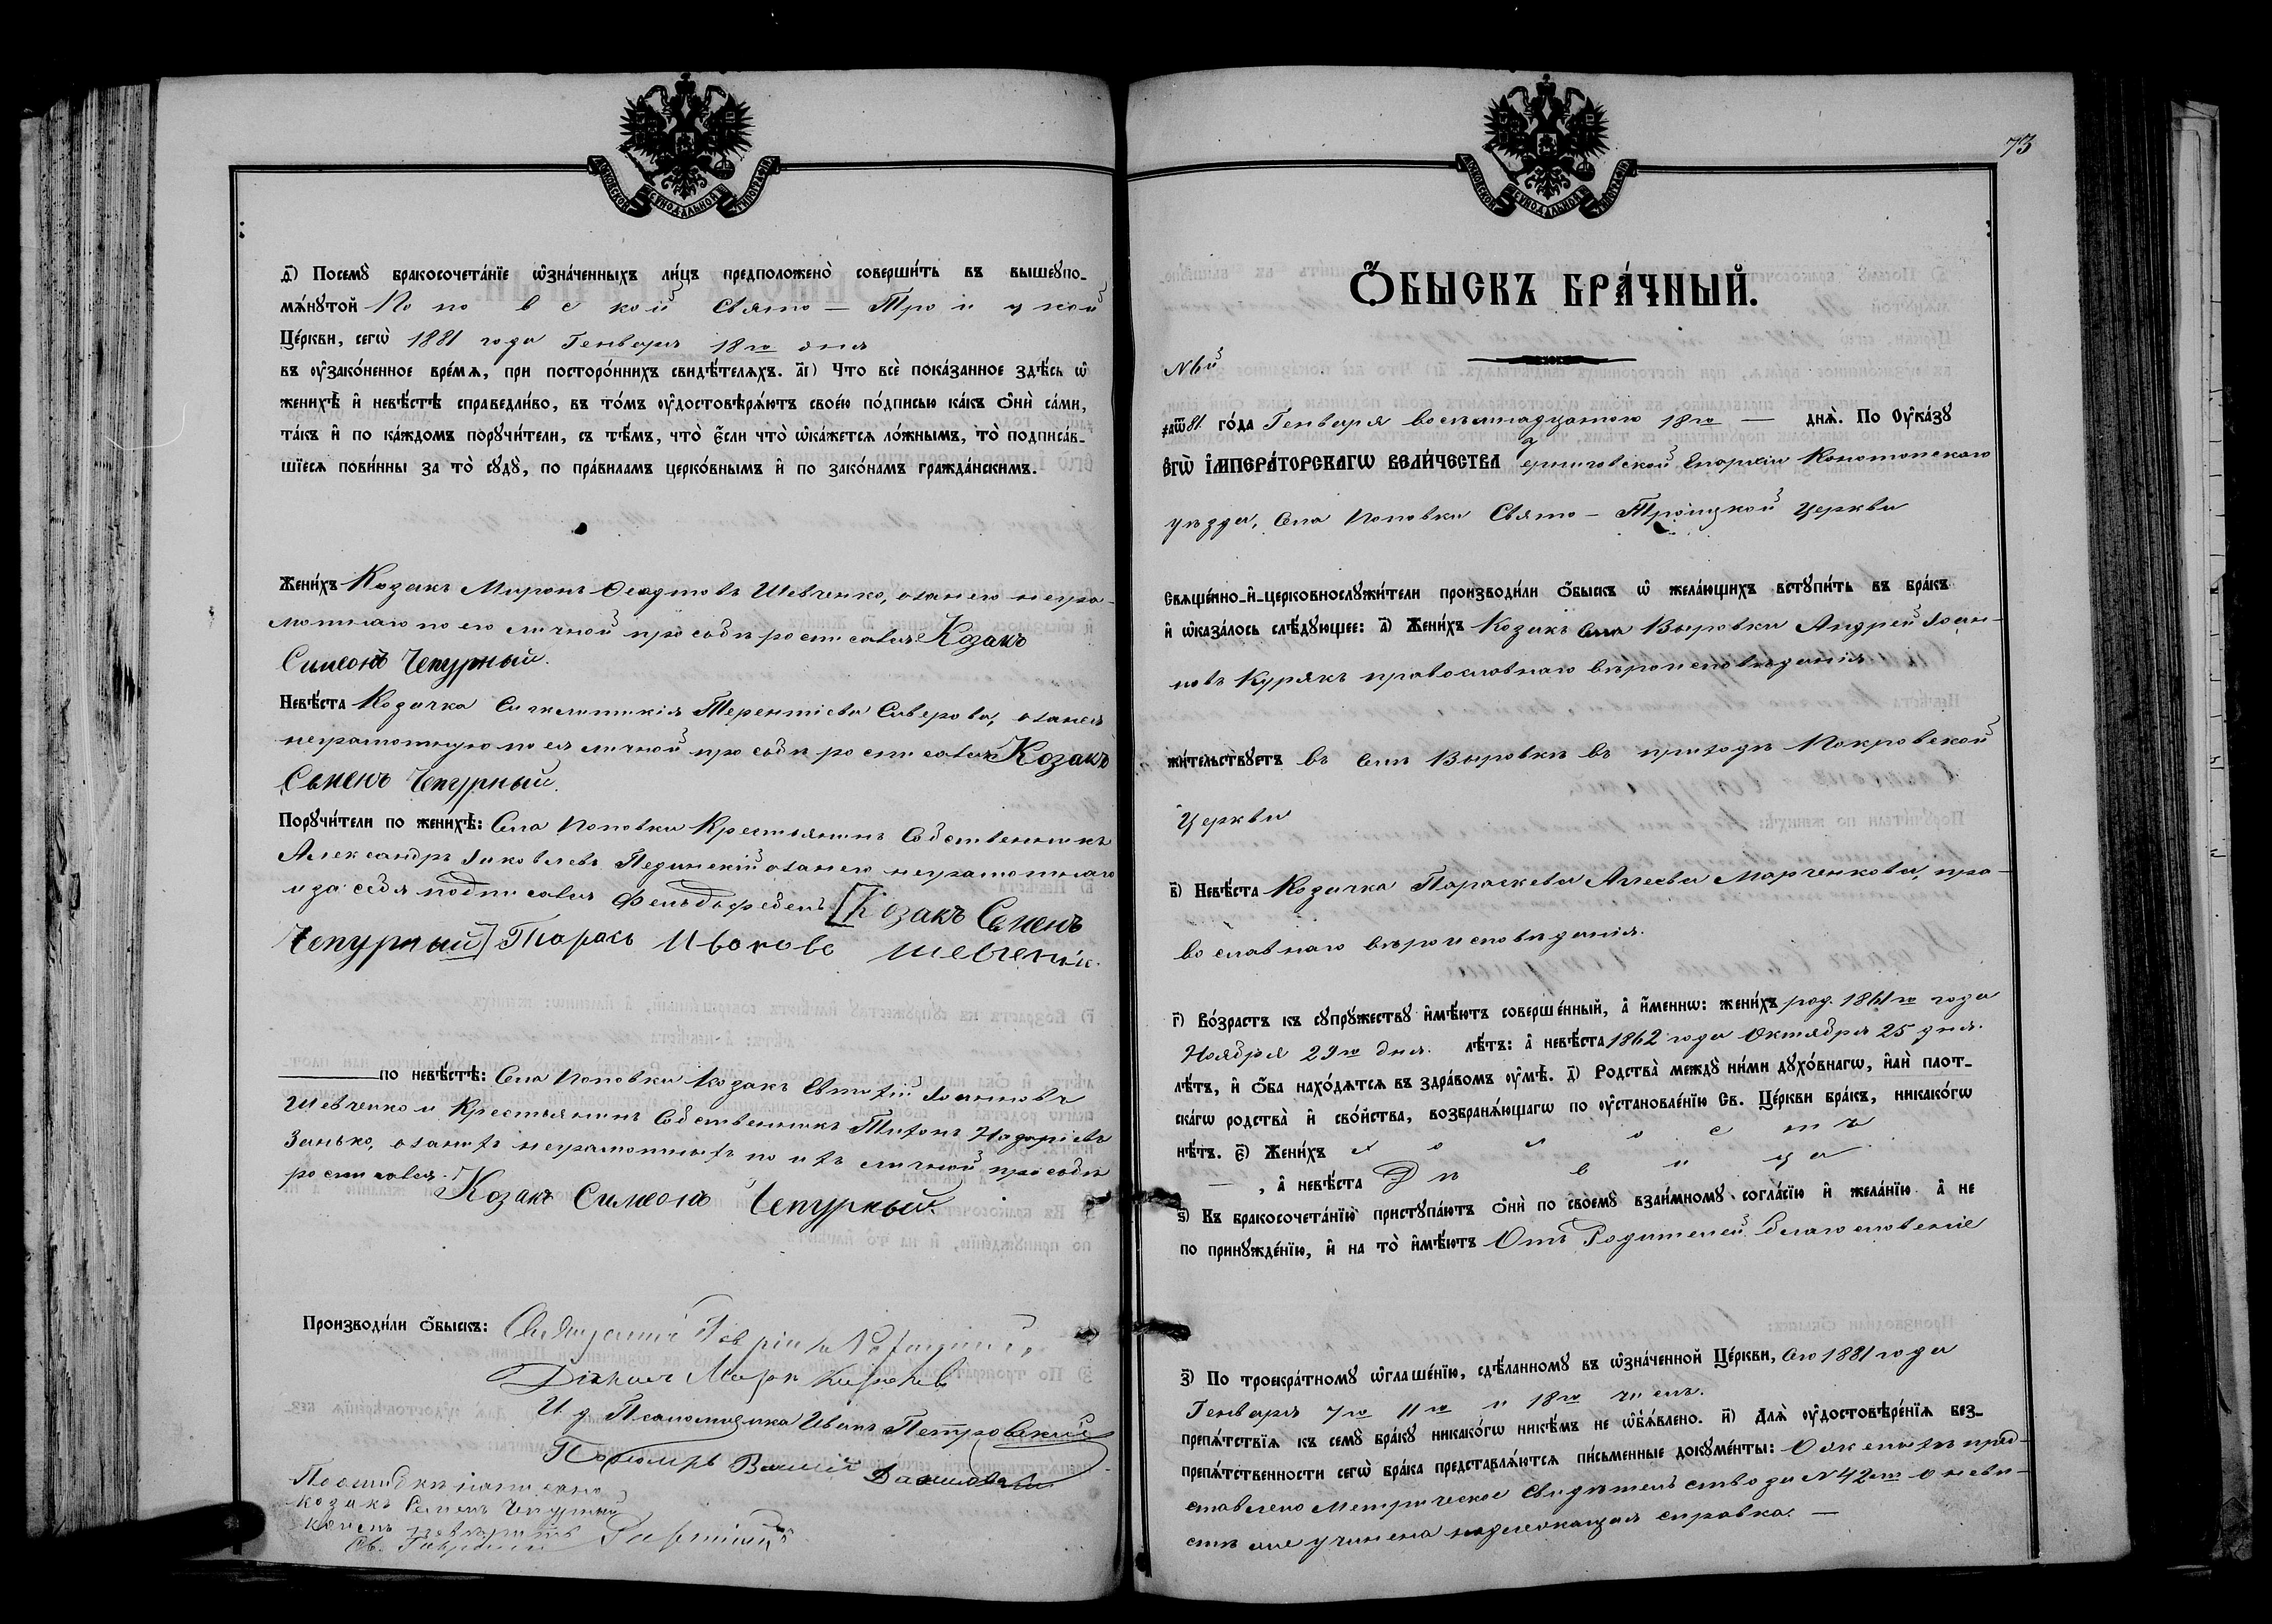 МОСКОВСКОЙ СѴНОДАЛЬНОЙ ТИПОГРАФІИ
҃) Посемꙋ̀ бракосочета́нїе ѡ҆зна́ченныхъ ли́цъ предположено̀ соверши́ть въ вышеꙋпо-
мѧ́нꙋтой Поповской Свято-Троицкой
Це́ркви, сегѡ̀ 1881 года Генваря 18го дня
въ ᲂу҆зако́ненное вре́мѧ, при посторо́ннихъ свидѣ́телѧхъ. а҃і) Что всѐ пока́занное здѣ́сь ѡ҆
женихѣ̀ и҆ невѣ́стѣ справедли́во, въ то́мъ ᲂу҆достовѣрѧ́ютъ свое́ю по́дписью ка́къ ѻ҆нѝ са́ми,
та́къ и҆ по ка́ждомъ порꙋчи́тели, съ тѣ́мъ, что̀ є҆́сли что̀ ѡ҆ка́жетсѧ ло́жнымъ, то̀ подписа́в-
шїесѧ пови́нны за то̀ сꙋдꙋ̀, по пра́виламъ церко́внымъ и҆ по зако́намъ гражда́нскимъ.
Жени́хъ Козакъ Миронъ Ѳеодотовъ Шевченко, о за него негра-
мотнаго по его личной просьбѣ росписался Козакъ
Симеонъ Чепурный.
Невѣ́ста Козачка Сигклитикія Терентіева Сиверова, о за нея
неграмотную по ея личной просьбѣ росписался Козакъ
Семенъ Чепурный.
Порꙋчи́тели по женихѣ̀: Села Поповки Крестьянинъ Собственникъ
Александръ Іаковлевъ Пединскій о за него неграмотнаго
и за себя подписался [Козакъ Семенъ
Чепурный] Тарасъ Ивановъ Шевченко.
по невѣ́стѣ: Села Поповки Козакъ Евтихій Іоанновъ
Шевченко и Крестьянинъ Собственникъ Титъ Назаріевъ
Занько, о за нихъ неграмотныхъ по ихъ личной просьбѣ
росписался. Козакъ Симеонъ Чепурный.
Производи́ли ѻ҆́быскъ: Священникъ
Діаконъ Маркъ
И. д. Псаломщика Иванъ Петровскій
Пономарь
По ошибкѣ написано
козакъ Семенъ Чепурный
73
МОСКОВСКОЙ СѴНОДАЛЬНОЙ ТИПОГРАФІИ
Ѻ҆́БЫСКЪ БРА́ЧНЫЙ.
№ 6й
҂аѿ81 го́да Генваря восемнадцатого 18го — днѧ̀. По Оу҆ка́зꙋ
Е҆гѡ̀ І҆МПЕРА́ТОРСКАГѠ ВЕЛИ́ЧЕСТВА Черниговской Епархіи Конотопского
уѣзда, Села Поповки Свято-Троицкой Церкви
Свѧще́нно-и҆-церковнослꙋжи́тели производи́ли ѻ҆́быскъ ѡ҆ жела́ющихъ встꙋпи́ть въ бра́къ
и҆ ѡ҆каза́лось слѣ́дꙋющее: а҃) Жени́хъ Козакъ Села Выровки Андрей Іоан-
новъ Курякъ православнаго вѣроисповѣданія
жи́тельствꙋетъ въ селѣ Выровкѣ въ приходѣ Покровской
Церкви
в҃) Невѣ́ста Козачка Параскева Алеева Марченкова, пра-
вославнаго вѣроисповѣданія.
г҃) Во́зрастъ къ сꙋпрꙋ́жествꙋ и҆мѣ́ютъ соверше́нный, а҆ и҆́меннѡ: жени́хъ род. 1861го года
Ноября 29го дня. лѣ́тъ: а҆ невѣ́ста 1862 года Октября 25 дня.
лѣ́тъ, и҆ ѻ҆́ба нахо́дѧтсѧ въ здра́вомъ ᲂу҆мѣ̀. д҃) Родства̀ междꙋ̀ ни́ми дꙋхо́внагѡ, и҆лѝ плот-
ска́гѡ родства̀ и҆ сво́йства, возбранѧ́ющагѡ по ᲂу҆становле́нїю Св. Це́ркви бра́къ, никако́гѡ
нѣ́тъ. є҃) Жени́хъ холостъ
—, а҆ невѣ́ста Дѣвица.
ѕ҃) Къ бракосочета́нїю пристꙋпа́ютъ ѻ҆нѝ по своемꙋ̀ взаи́мномꙋ согла́сїю и҆ жела́нїю а҆ не
по принꙋжде́нїю, и҆ на то̀ и҆мѣ́ютъ Отъ Родителей благословеніе
з҃) По троекра́тномꙋ ѡ҆глаше́нїю, сдѣ́ланномꙋ въ ѡ҆зна́ченной Це́ркви, Сего 1881 года
Генваря 7го 11го и 18го чиселъ.
препѧ́тствїѧ къ семꙋ̀ бра́кꙋ никако́гѡ никѣ́мъ не ѡ҆бъѧ́влено. и҃) Длѧ̀ ᲂу҆достовѣре́нїѧ без-
препѧ́тственности сегѡ̀ бра́ка представлѧ́ютсѧ пи́сьменные докꙋме́нты: О женихѣ пред-
ставлено Метрическое Свидѣтельство за № 42мъ о невѣ-
стѣ же учинена надлежащая справка. —